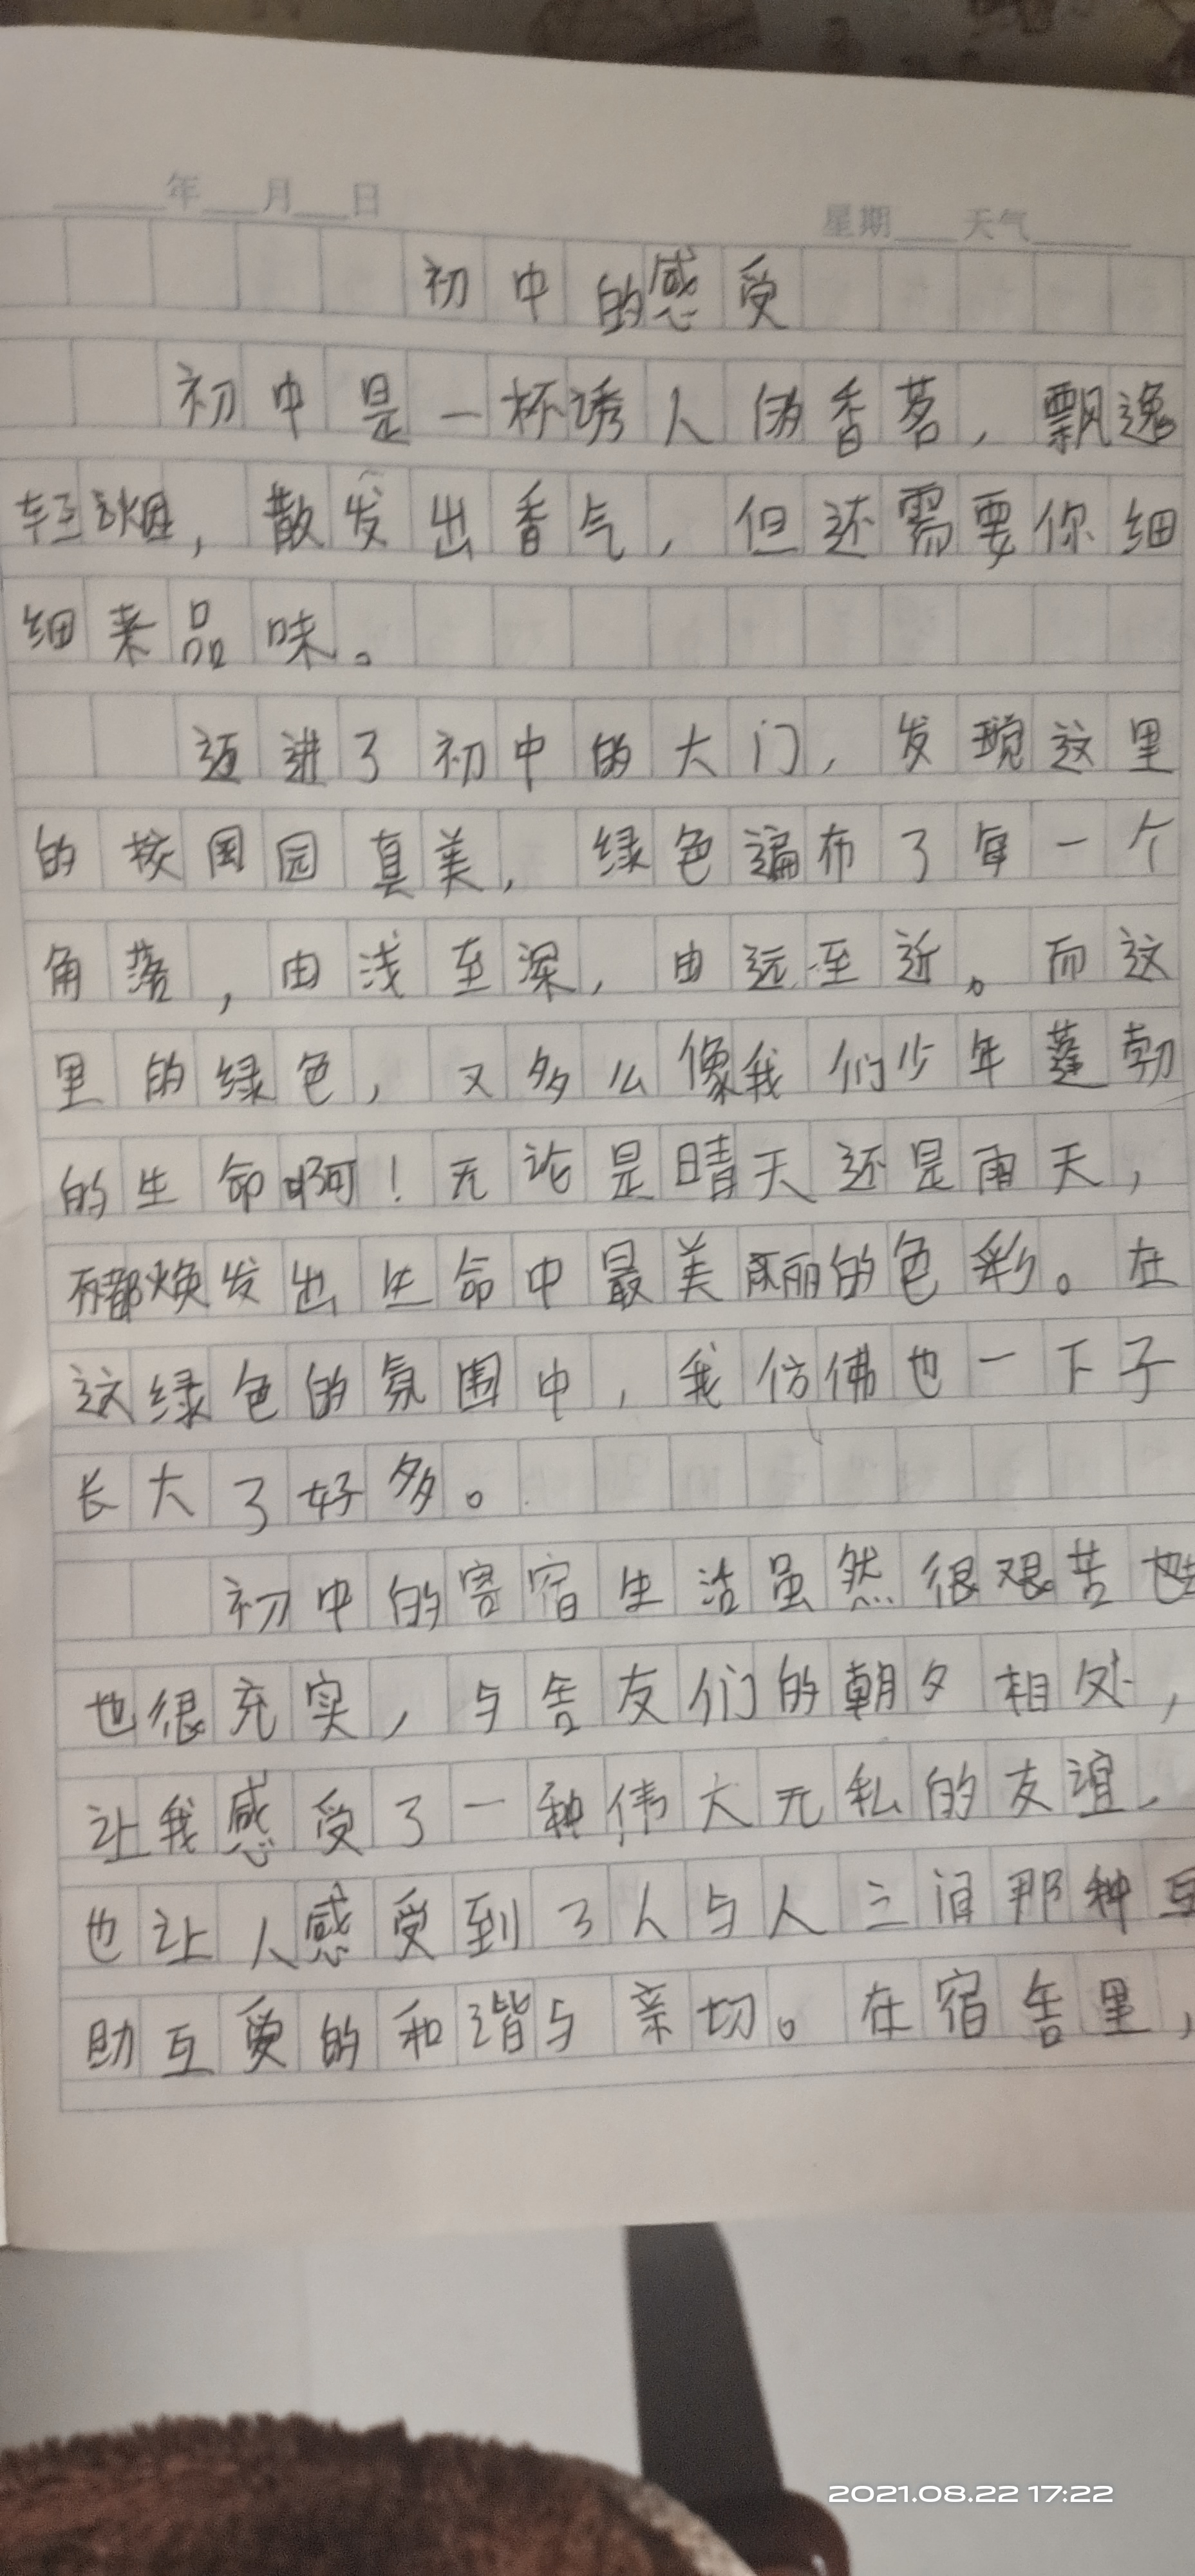 年 月 日 星期 天气
初中的感受
初中是一杯诱人的香茗，飘逸
轻烟，散发出香气，但还需要你细
细来品味。
迈进了初中的大门，发现这里
的校园园真美，绿色遍布了每一个
角落，由浅至深，由远至近。而这
里的绿色，又多么像我们少年蓬勃
的生命啊！无论是晴天还是雨天，
都焕发出生命中最美丽的色彩。在
这绿色的氛围中，我仿佛也一下子
长大了好多。
初中的寄宿生活虽然很艰苦
也很充实，与舍友们的朝夕相处，
让我感受了一种伟大无私的友谊，
也让人感受到了人与人之间那种互
助互爱的和谐与亲切。在宿舍里，
2021.08.22 17:22